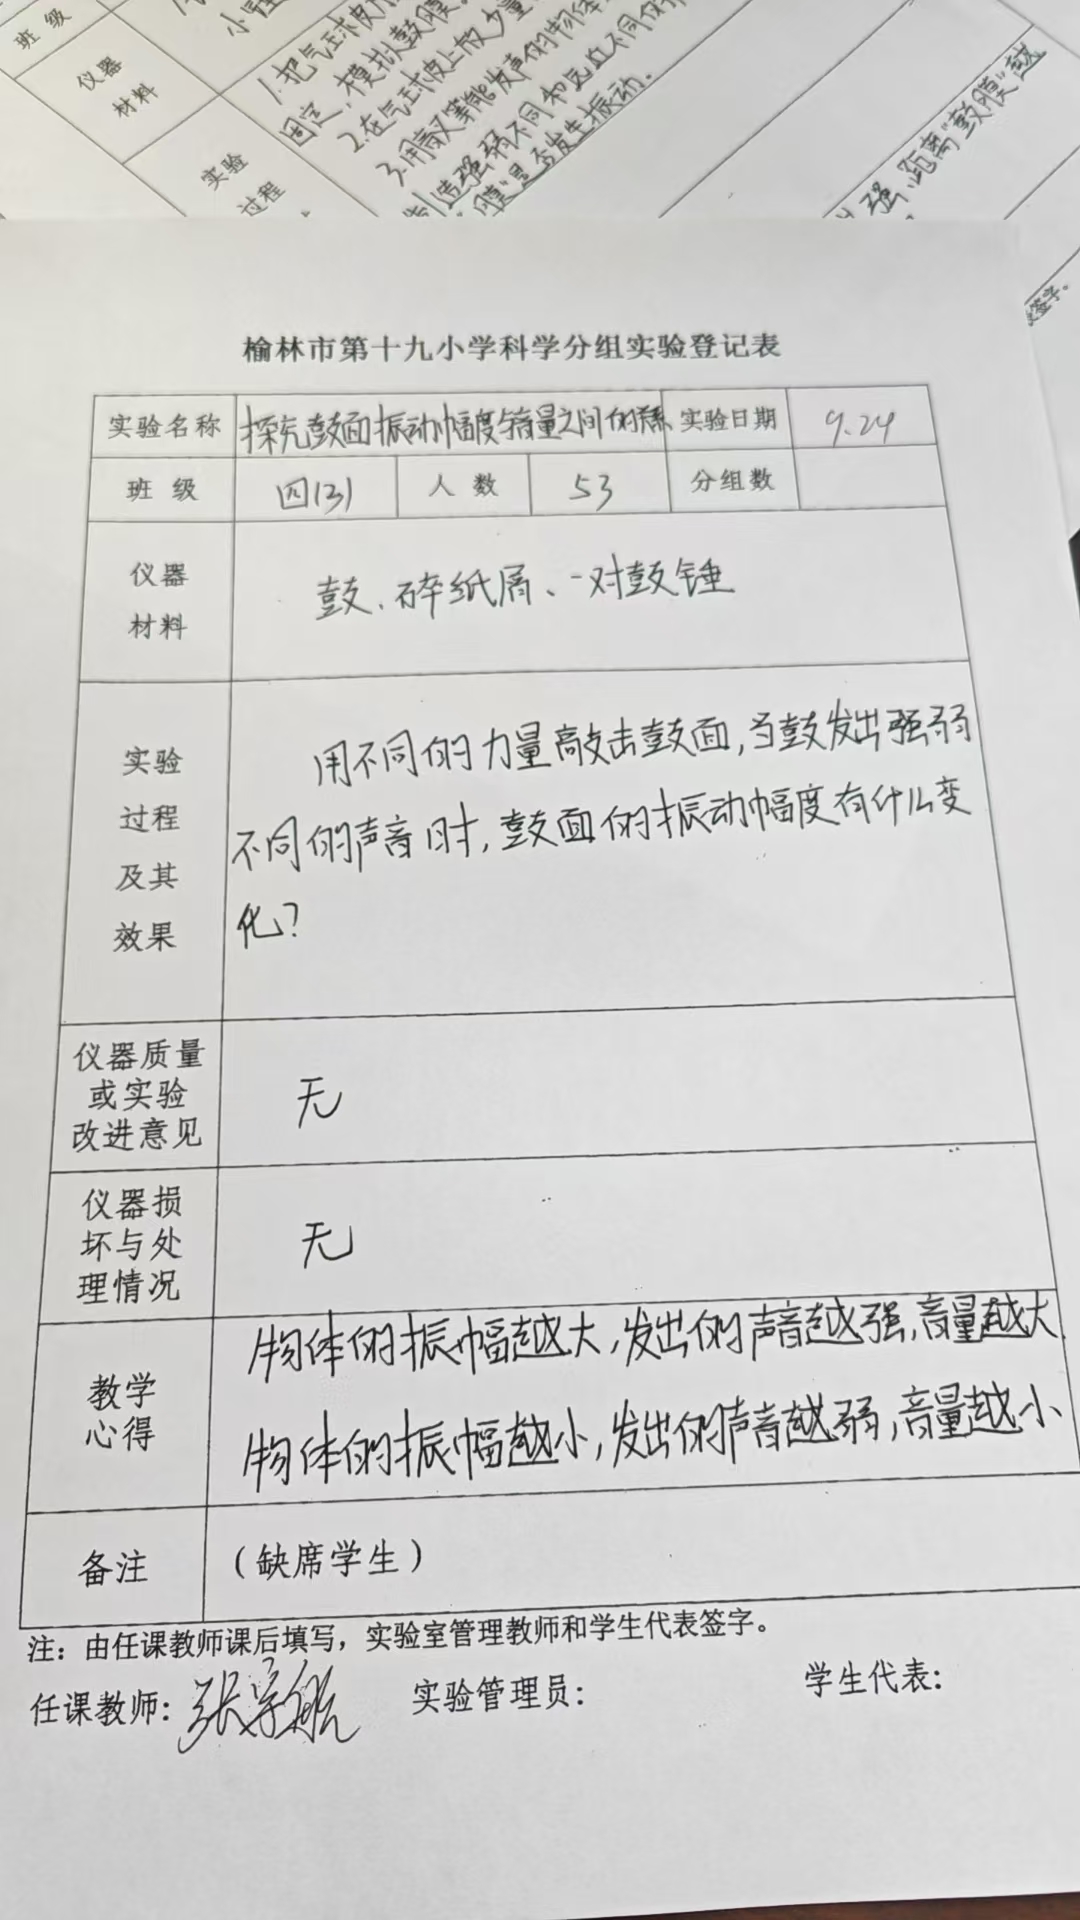 班 级
仪器
材料
实验
过程
1.把气球皮
固定，模拟鼓膜。
2.在气球皮上放少量
3.用音叉等能发声的物体
制造强弱不同和远近不同的
膜"是否发生振动.
强,距离"鼓膜"越
签字。
榆林市第十九小学科学分组实验登记表
实验名称 探究鼓面振动幅度与音量之间的关系 实验日期 9.24
班 级 四(3) 人 数 53 分组数
仪器
材料
鼓、碎纸屑、一对鼓锤
实验
过程
及其
效果
用不同的力量敲击鼓面,当鼓发出强弱
不同的声音时,鼓面的振动幅度有什么变
化?
仪器质量
或实验
改进意见
无
仪器损
坏与处
理情况
无
教学
心得
物体的振幅越大,发出的声音越强,音量越大
物体的振幅越小,发出的声音越弱,音量越小
备注 （缺席学生）
注：由任课教师课后填写，实验室管理教师和学生代表签字。
任课教师: 张宇航 实验管理员: 学生代表: